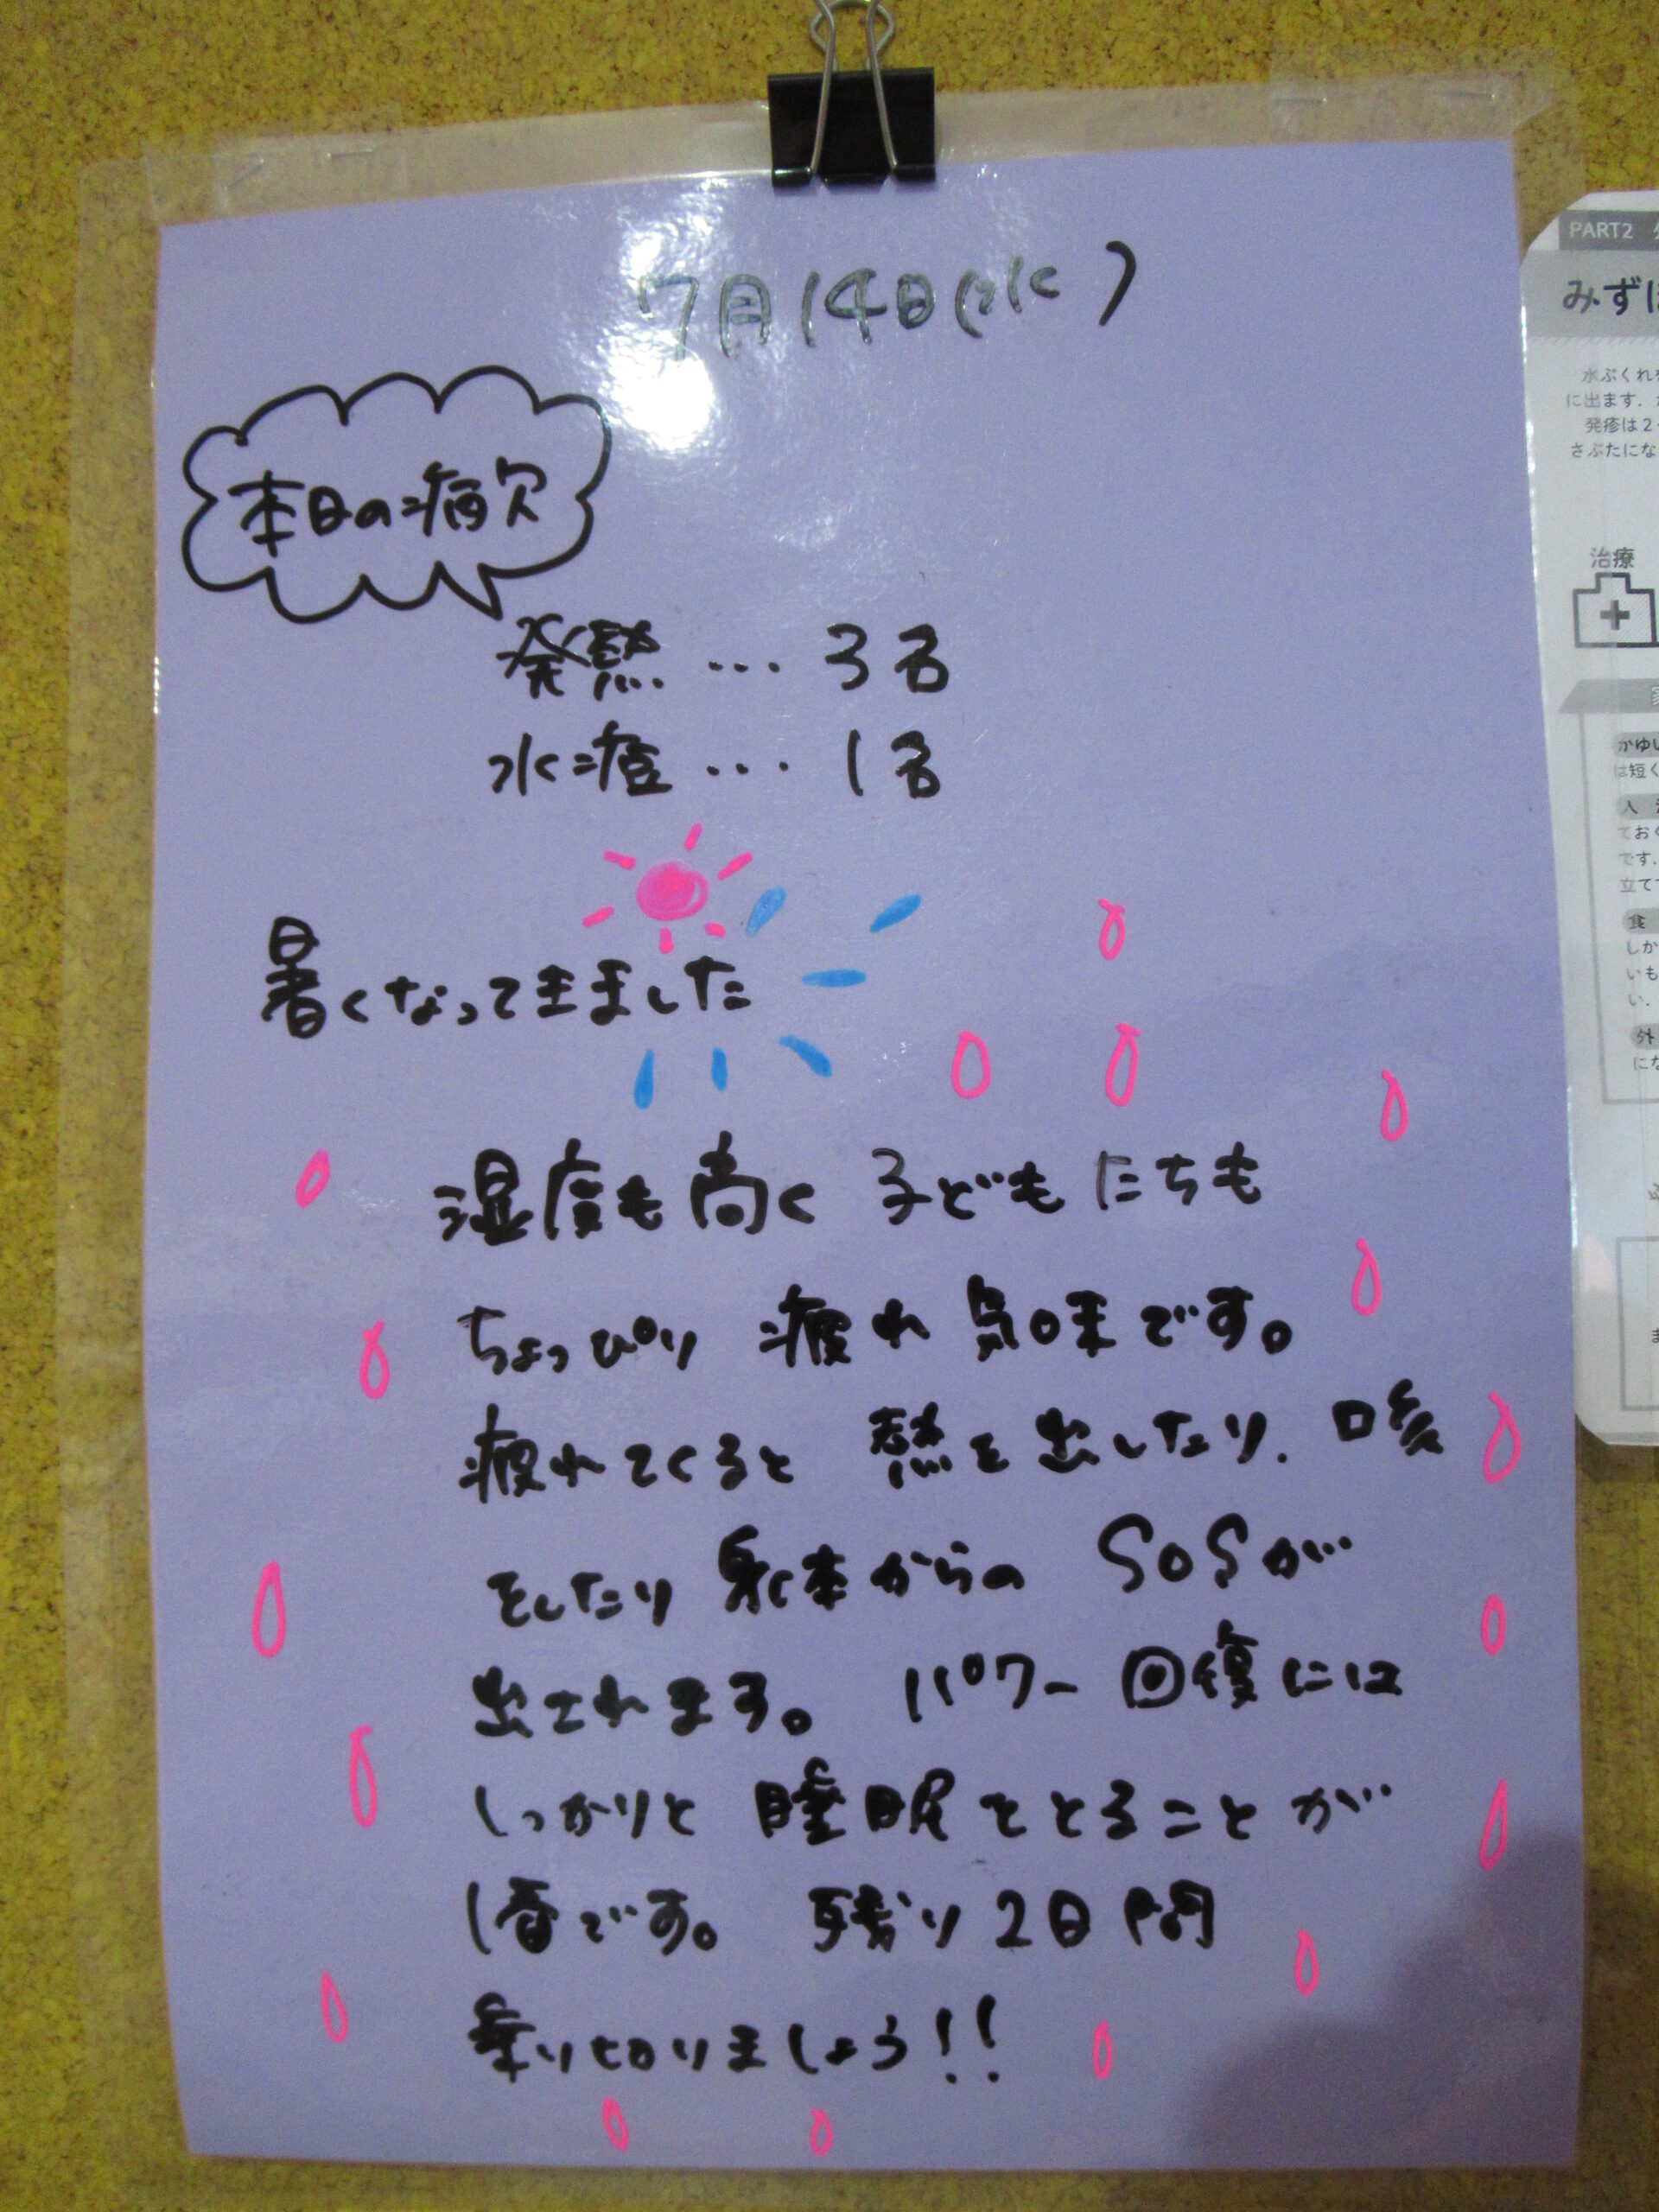 7月14日(水)
本日の病欠
発熱…3名
水痘…1名
暑くなってきました
湿度も高く子どもたちも
ちょっぴり疲れ気味です。
疲れてくると熱を出したり、咳
をしたり身体からのSOSが
出されます。パワー回復には
しっかりと睡眠をとることが
1番です。残り2日間
乗り切りましょう!!
PART2
みずほ
水ぶくれ
に出ます.
発疹は2
さぶたにな
治療
かゆい
は短く
入
ておく
です.
立て
食
しか
いも
い.
外
にな